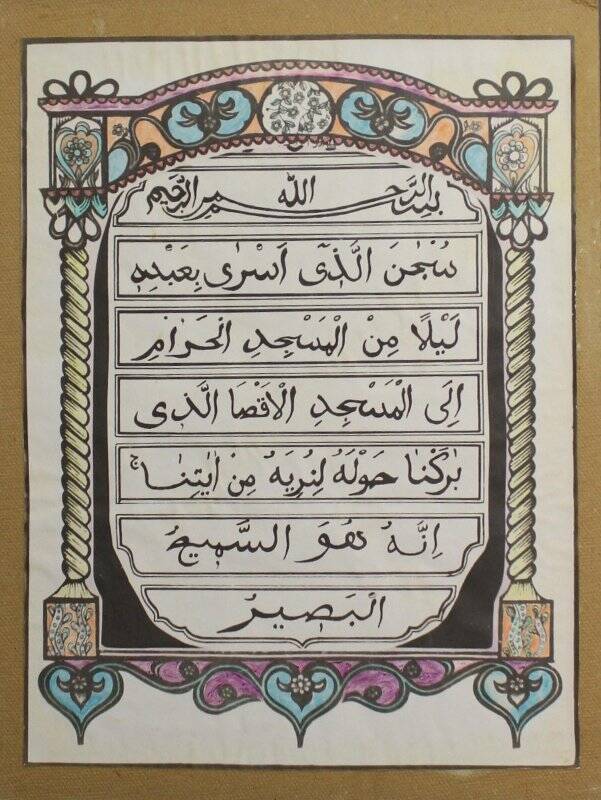 بسم الله الرحمن الرحيم
سُبْحٰنَ الَّذِیْٓ اَسْرٰی بِعَبْدِهٖ
لَیْلًا مِنْ الْمَسْجِدِ الْحَرَامِ
اِلَی الْمَسْجِدِ الْاَقْصَا الَّذِی
بٰرَكْنَا حَوْلَهُ لِنُرِیَهُ مِنْ اٰیٰتِنَا ۚ
اِنَّهُ هُوَ السَّمِیْعُ
الْبَصِیْرُ